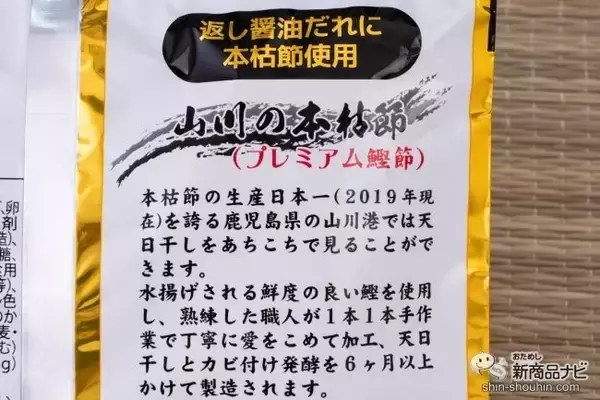 返し醤油だれに
本枯節使用
山川の本枯節
(プレミアム鰹節)
本枯節の生産日本一(2019年現
在)を誇る鹿児島県の山川港では天
日干しをあちこちで見ることがで
きます。
水揚げされる鮮度の良い鰹を使用
し、熟練した職人が1本1本手作
業で丁寧に愛をこめて加工、天日
干しとカビ付け発酵を6ヶ月以上
かけて製造されます。
卵
剤
造)、
糖、
用
等)、
色
のか
麦・
む)
g)
おためし
新商品ナビ
shin-shouhin.com